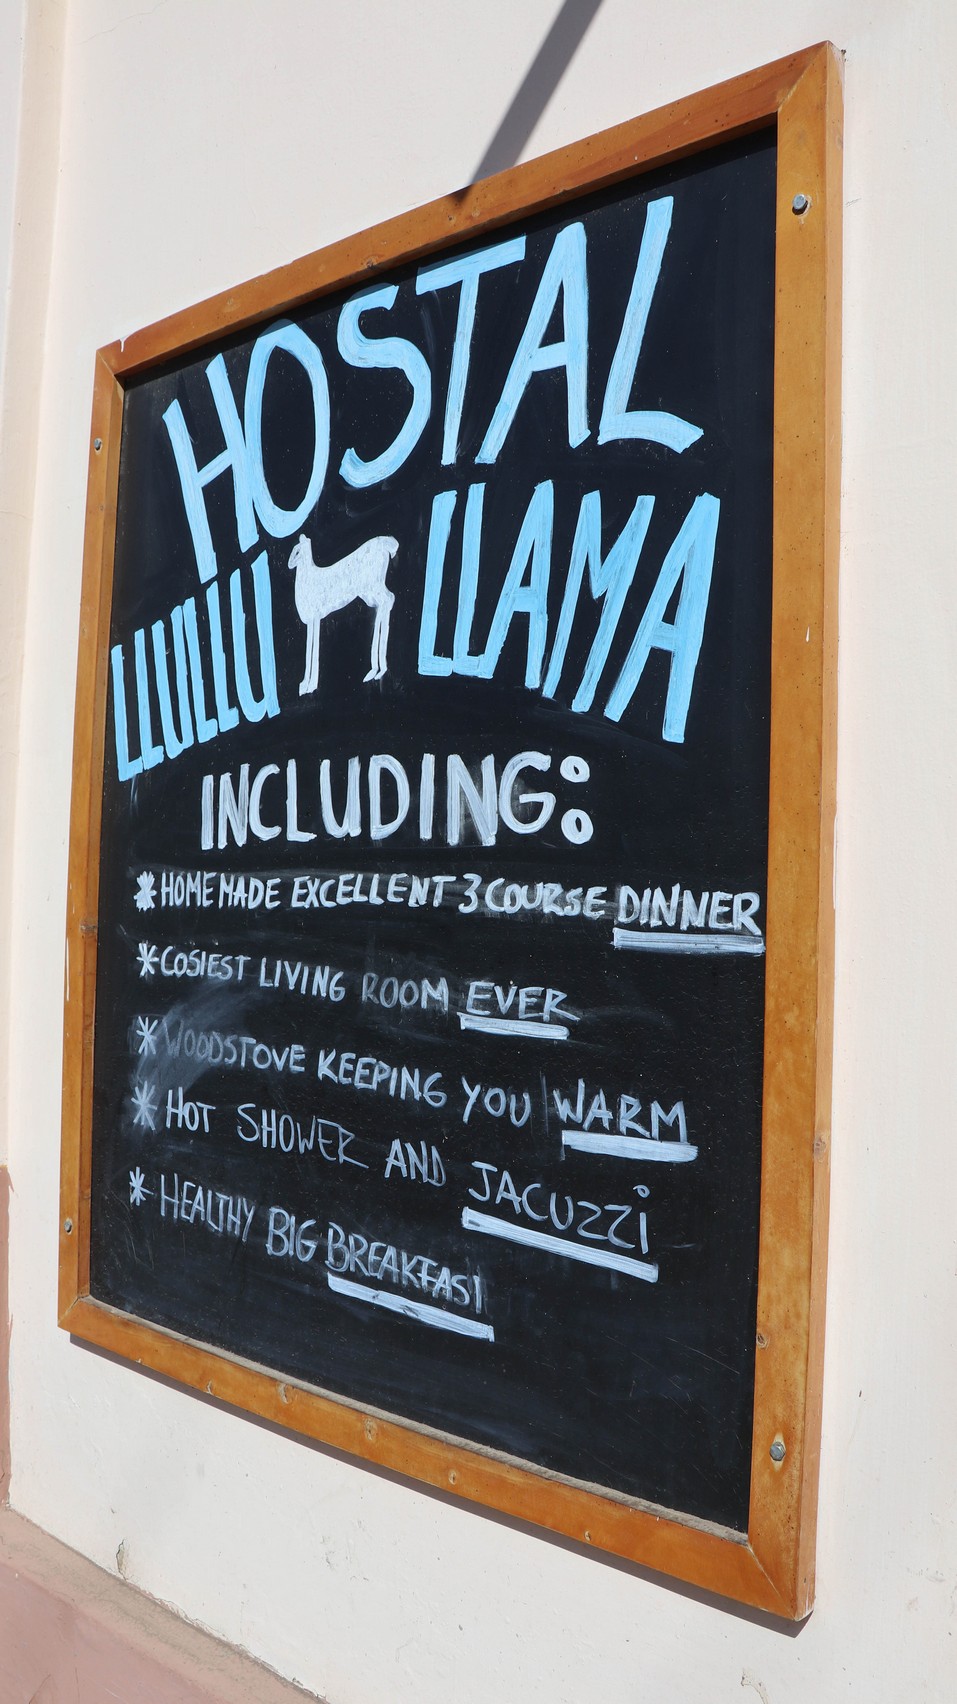 HOSTAL
LLULLU LLAMA
INCLUDING:
* HOMEMADE EXCELLENT 3 COURSE DINNER
* COSIEST LIVING ROOM EVER
* WOODSTOVE KEEPING YOU WARM
* HOT SHOWER AND JACUZZi
* HEALTHY BIG BREAKFAST